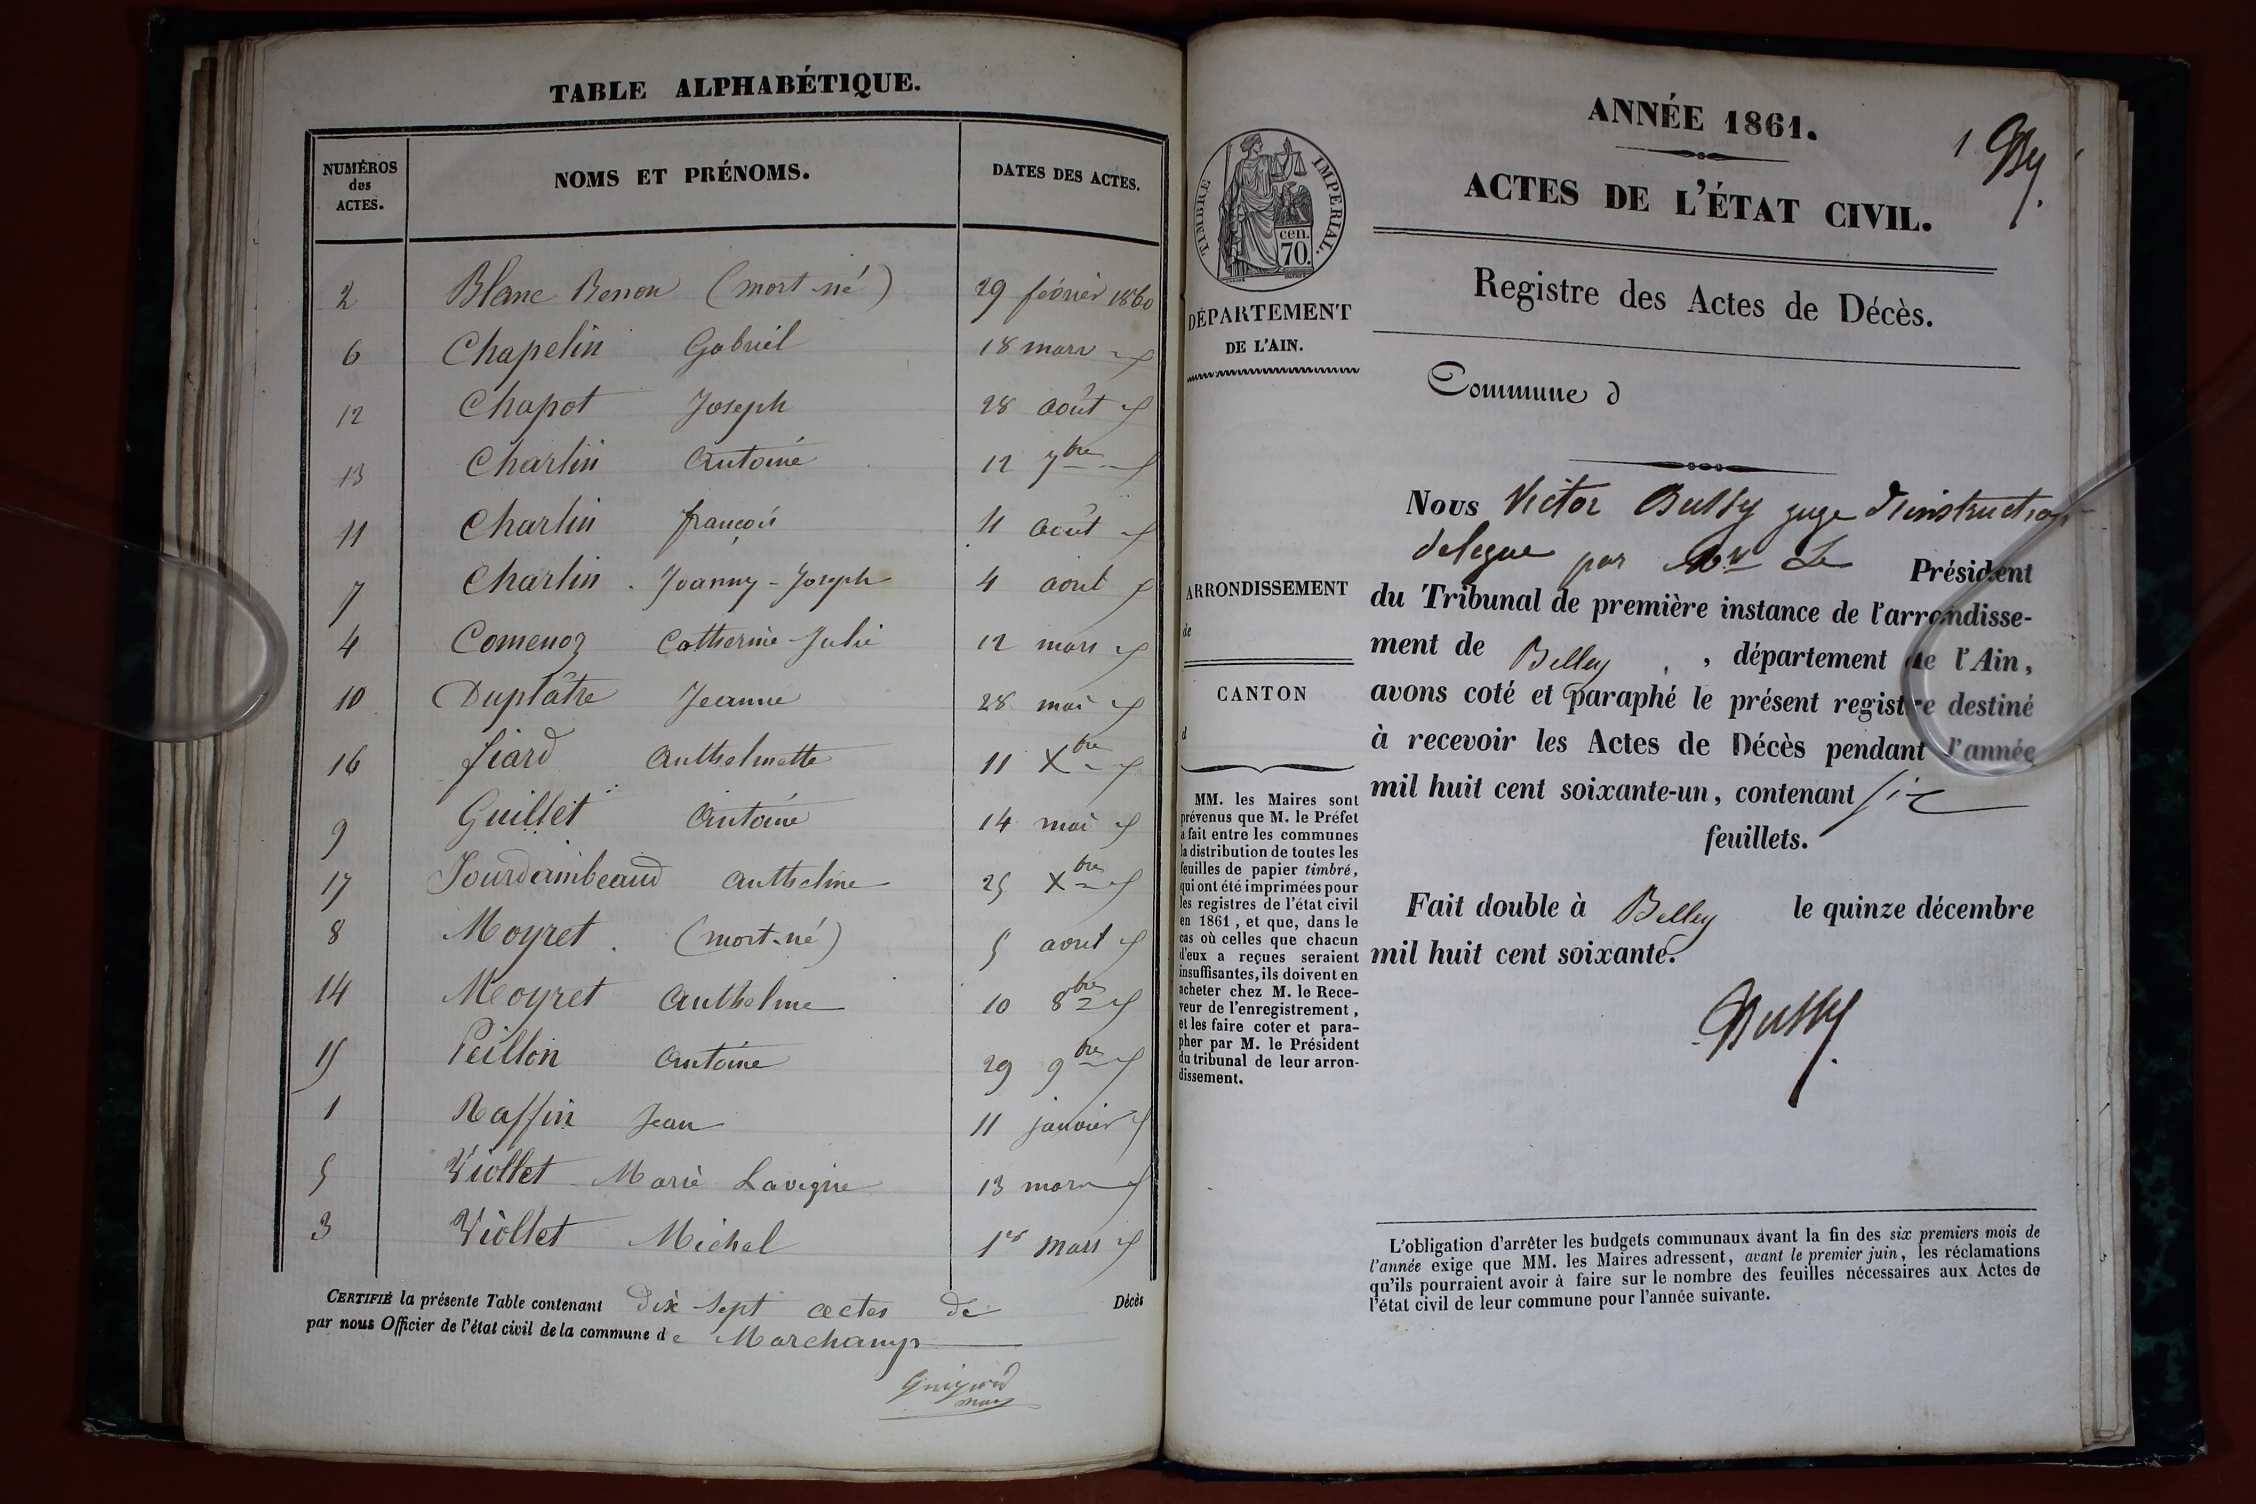 TABLE ALPHABÉTIQUE.
NUMÉROS des ACTES.
NOMS ET PRÉNOMS.
DATES DES ACTES.
2 Blanc Benon (mort-né) 29 février 1860
6 Chapelin Gabriel 18 mars
12 Chapot Joseph 28 août
13 Charlin Antoine 12 7bre
11 Charlin françois 11 août
7 Charlin Joanny-Joseph 4 avril
4 Comenoz Catherine-Julie 12 mars
10 Duplâtre Jeanne 28 mai
16 fiard Anthelmette 11 Xbre
9 Guillet Antoine 14 mai
17 Jourdainbeaud Anthelme 25 Xbre
8 Moyret (mort-né) 5 avril
14 Moyret Anthelme 10 8bre
15 Peillon Antoine 29 9bre
1 Raffin Jean 11 janvier
5 Viollet Marie Lavigne 13 mars
3 Viollet Michel 1er mars
CERTIFIÉ la présente Table contenant dix-sept actes de Décès
par nous Officier de l'état civil de la commune de Marchamp
ANNÉE 1861.
1
ACTES DE L'ÉTAT CIVIL.
Registre des Actes de Décès.
TIMBRE IMPÉRIAL.
70. cen.
DÉPARTEMENT
DE L'AIN.
Commune d
ARRONDISSEMENT
de
CANTON
d
MM. les Maires sont
prévenus que M. le Préfet
a fait entre les communes
la distribution de toutes les
feuilles de papier timbré,
qui ont été imprimées pour
les registres de l'état civil
en 1861, et que, dans le
cas où celles que chacun
d'eux a reçues seraient
insuffisantes, ils doivent en
acheter chez M. le Rece-
veur de l'enregistrement,
et les faire coter et para-
pher par M. le Président
du tribunal de leur arron-
dissement.
Nous Victor Bussy juge d'instruction
delegue par Mr Le Président
du Tribunal de première instance de l'arrondisse-
ment de Belley, département de l'Ain,
avons coté et paraphé le présent registre destiné
à recevoir les Actes de Décès pendant l'année
mil huit cent soixante-un, contenant six
feuillets.
Fait double à Belley le quinze décembre
mil huit cent soixante.
Bussy
L'obligation d'arrêter les budgets communaux avant la fin des six premiers mois de
l'année exige que MM. les Maires adressent, avant le premier juin, les réclamations
qu'ils pourraient avoir à faire sur le nombre des feuilles nécessaires aux Actes de
l'état civil de leur commune pour l'année suivante.